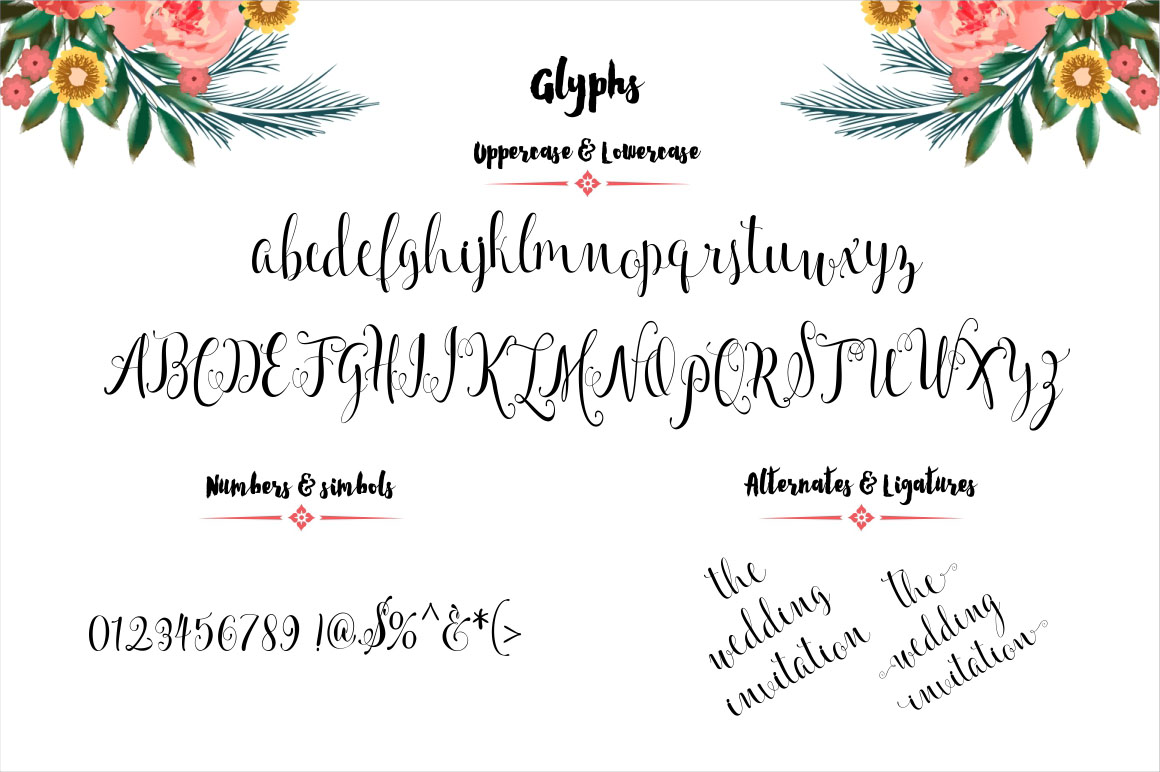 Glyphs
Uppercase & Lowercase
abcdefghijklmnopqrstuwxyz
ABCDEFGHIJKLMNOPQRSTUWXYZ
Numbers & simbols
Alternates & Ligatures
0123456789 !@$%^&*(>
the
wedding
invitation
the
wedding
invitation